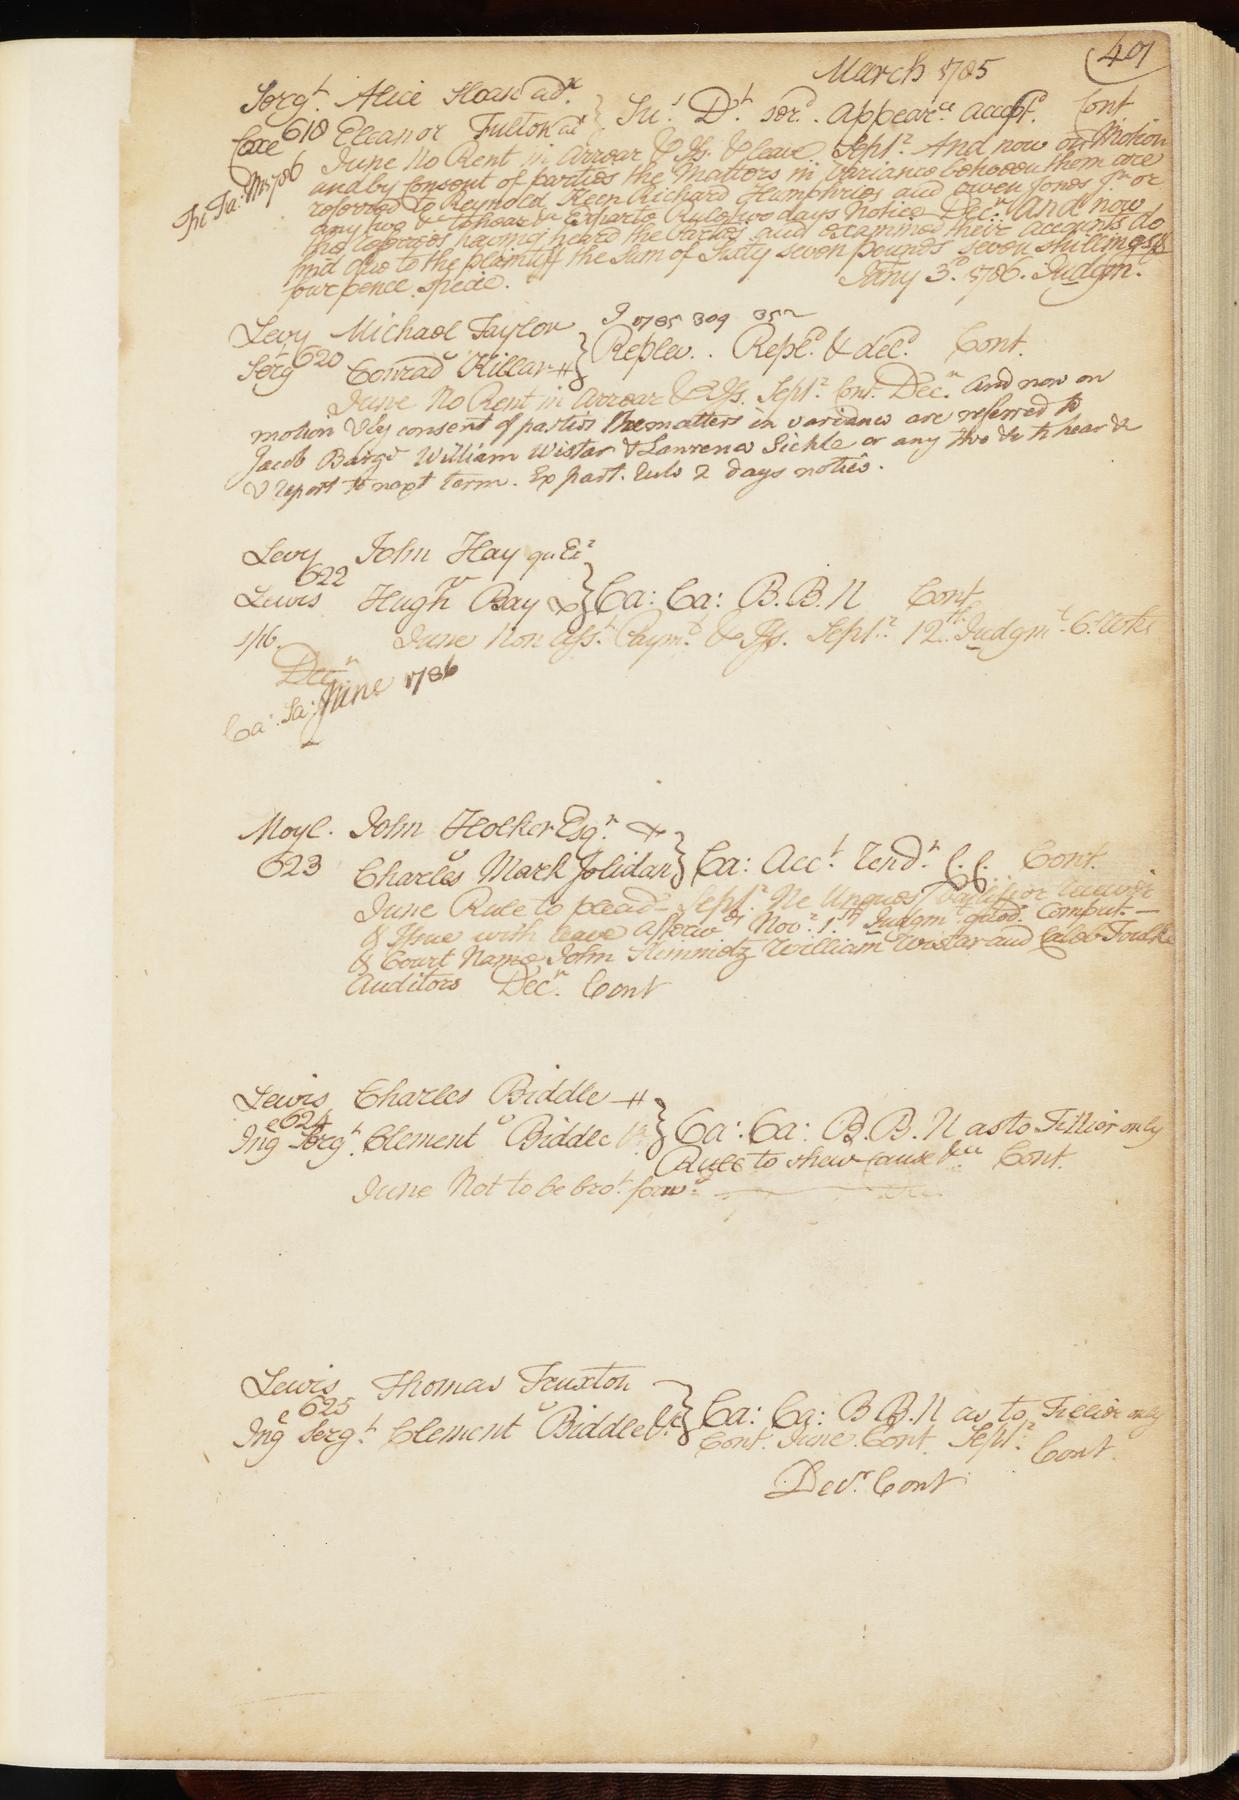 March 1785 (401
Sergt. Alice Sloan adx.
Coxe 618 Eleanor Fulton ax } Sus. Dt. ser. . appearce accept. Cont
June No Rent in Arrear & Iss. & leave Septr. And now on Motion
Fi: Fa: M 1786
and by Consent of parties the Matters in Variance between them are
referred to Reynold Keen Richard Humphries and Owen Jones Jr. or
any two &c to hear &c Exparte Rule two days Notice Decr. And now
the referees having heard the parties and examined their accounts do
find due to the plaintiff the Sum of Sixty seven pounds seven shillings &
four pence specie. Jany 3d. 1786. Judgmt.
J 1785 309 352
Levy Michael Taylor
Sergt 620 v Conrad Killar # } Replev. . Repld. & deld. Cont.
June No Rent in Arrear & Iss. Septr. Cont. Decr. And now on
motion & by consent of parties the matters in variance are referred to
Jacob Barge William Wistar & Lawrence Sickle or any two &c to hear &c
& report to next term. Ex part. Rule 2 days notice.
Levy John Hay qui Er
622
Lewis v Hugh Bay } Ca: Ca: B. B. N Cont
1/16. June Non Asst. Paymt. & Iss. Septr. 12th. Judgmt. 6. Wks
Decr.
Ca: Sa: June 1786
Moyl. John Holker Esqr.
623 v Charles Mark Jolidan } Ca: Acct. Rendr. C. C. Cont.
June Rule to plead - Septr. Ne Unques Bailiff or Receiver
& Issue with leave Novr. 1st. Judgmt quod. Comput. -
& Court Name John Steinmetz William Wistar and Caleb Foulke
Auditors Decr. Cont
Lewis Charles Biddle #
e 624
Ing Sergt. v Clement Biddle } Ca: Ca: B. B. N as to Tillier only
Rule to shew Cause &c Cont.
June Not to be brot. forwd.
Lewis Thomas Truxton
e 625
Ing Sergt. v Clement Biddle } Ca: Ca: B B. N as to Tillier only
Cont. June Cont. Septr. Cont.
Decr. Cont